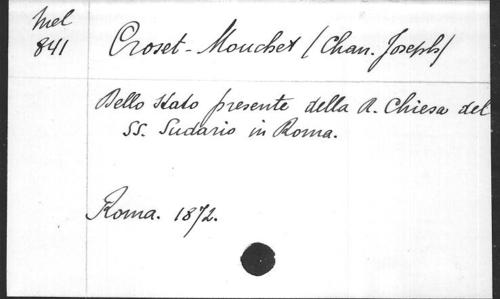 Mel
841
Croset-Mouchet (Chan. Joseph)
Dello stato presente della R. Chiesa del
SS. Sudario in Roma.
Roma. 1872.